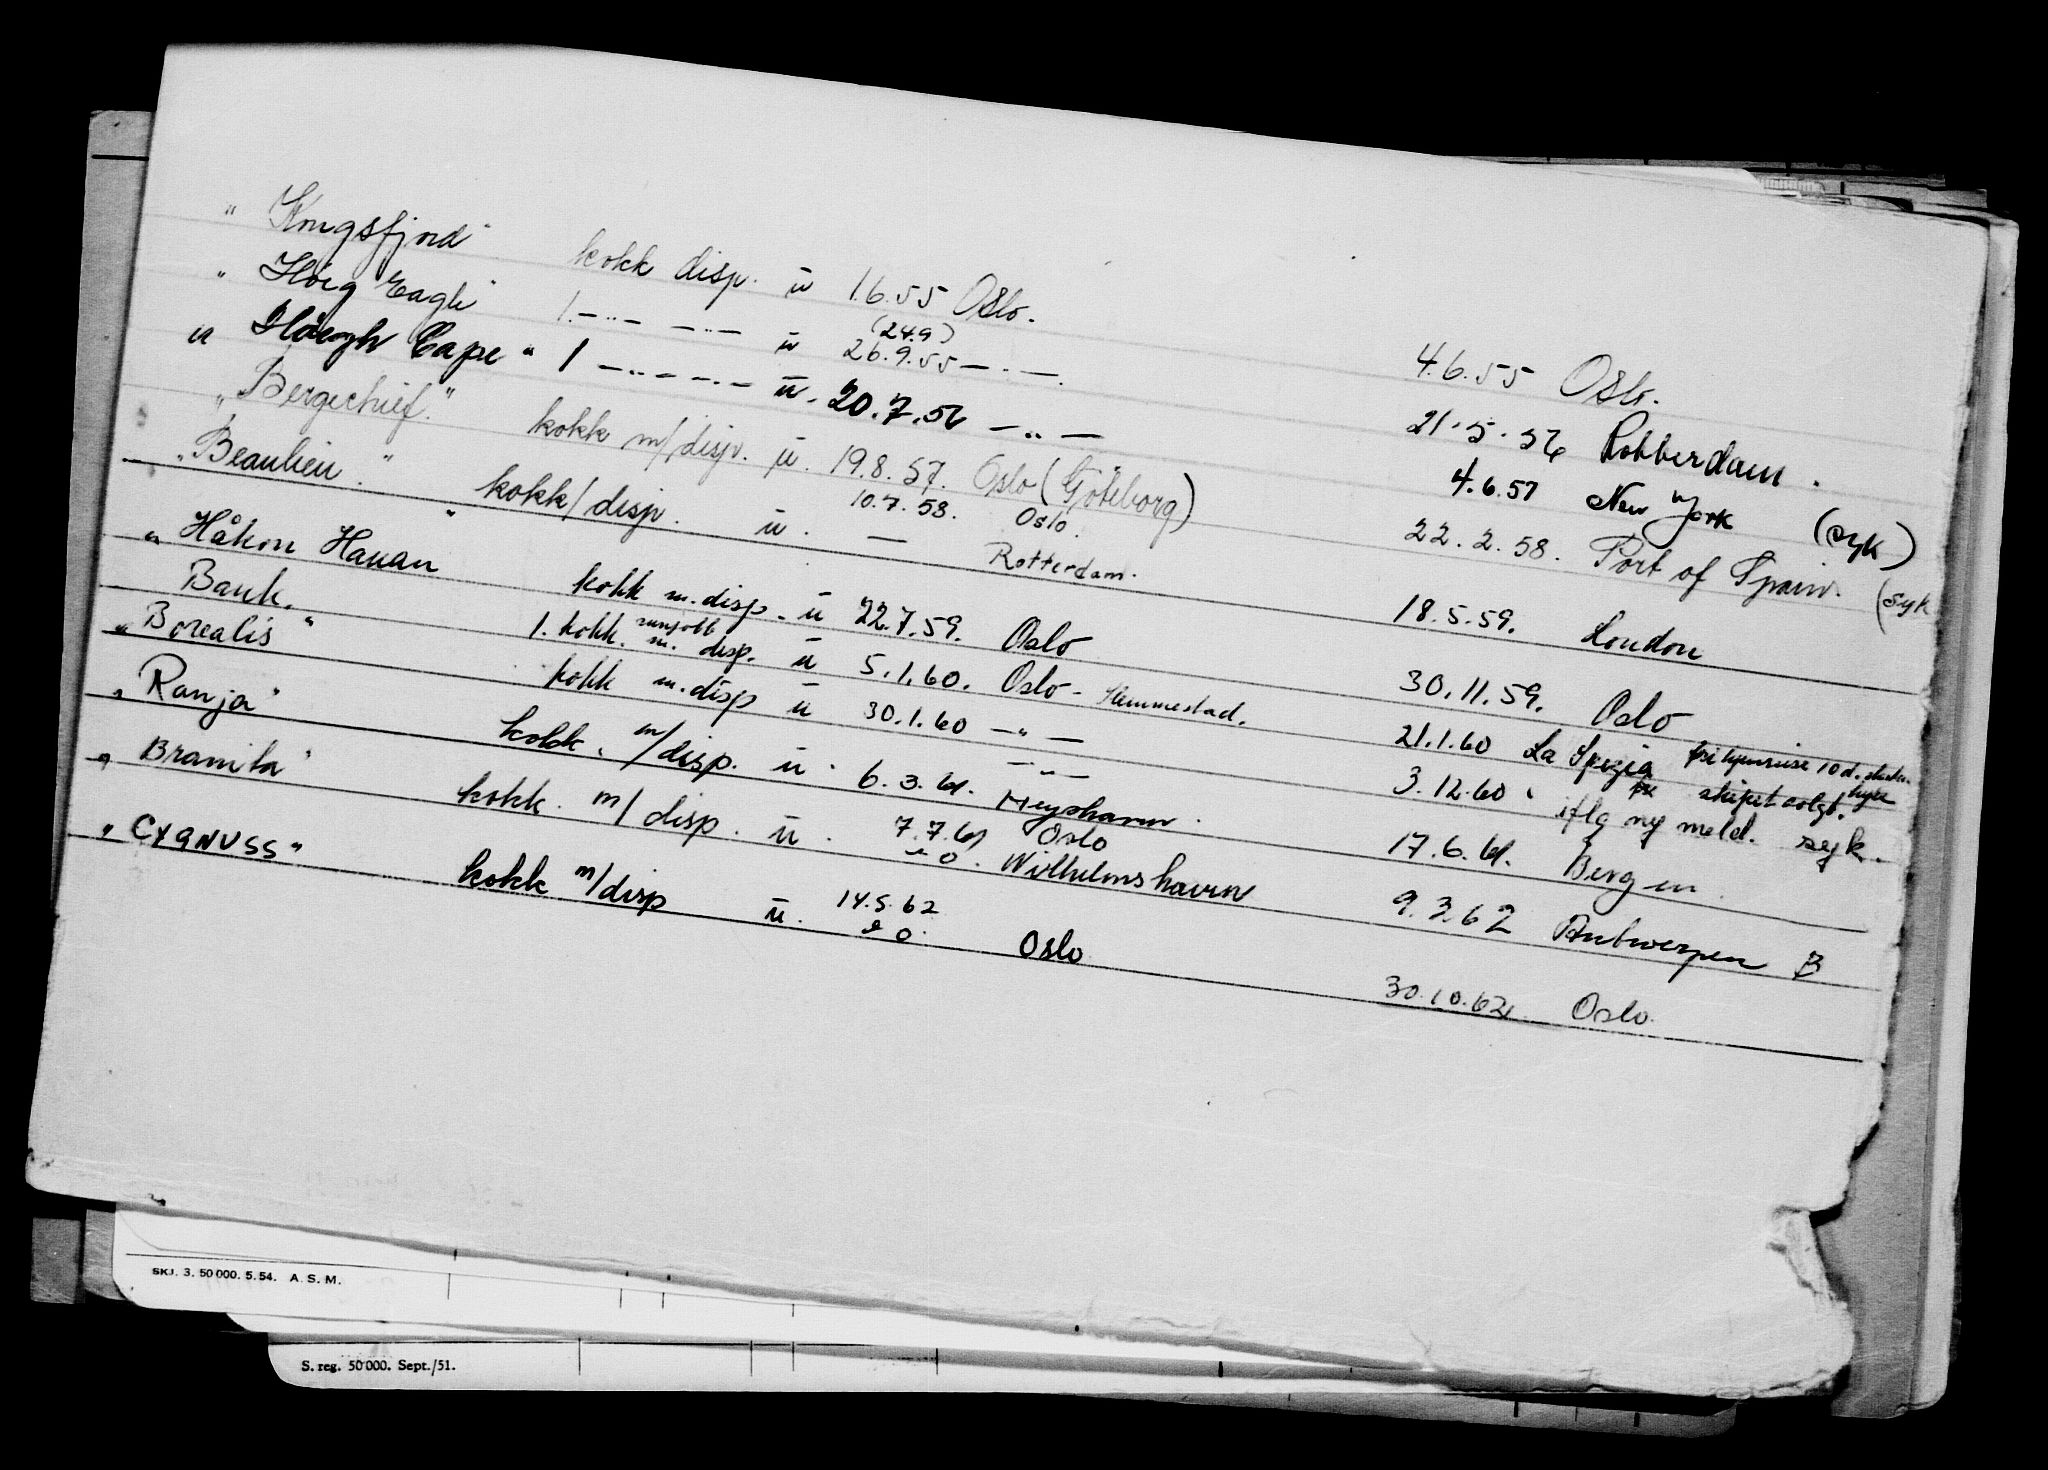 "Kongsfjord" kokk disp. ü 1.6.55 Oslo. 4.6.55 Oslo.
"Höeg Eagle" 1. -"- -"- ü (24.9) 26.9.55 -"- 21.5.56 Rotterdam.
"Höegh Cape" 1 -"- -"- ü. 20.7.56 -"- 4.6.57 New York (syk)
"Bergechief." kokk m/disp. ü. 19.8.57. Oslo (Göteborg) 22.2.58. Port of Spain. (syk
"Beaulieu." kokk/disp. ü. 10.7.58. Oslo. — Rotterdam. 18.5.59. London
"Håkon Hauan" kokk m.disp. ü 22.7.59. Oslo 30.11.59. Oslo
Bauk. 1. kokk. m. disp. ü 5.1.60. Oslo - Slemmestad. 21.1.60 La Spezia 10 d. hyre skipet solgt.
"Borealis" kokk m.disp ü 30.1.60 -"- 3.12.60 iflg ny meld. syk.
"Ranja" kokk. m/disp. ü. 6.3.61. -"- Meyshavn. 17.6.61. Bergen.
"Bramila" kokk. m/disp. ü. 7.7.61 Oslo e O. Wilhelmshavn 9.3.62 Antwerpen B
"CYGNUSS" kokk m/disp ü. 14.5.62 e O. Oslo 30.10.62. Oslo.
SKJ. 3. 50 000. 5. 54. A. S. M.
S. reg. 50 000. Sept./51.